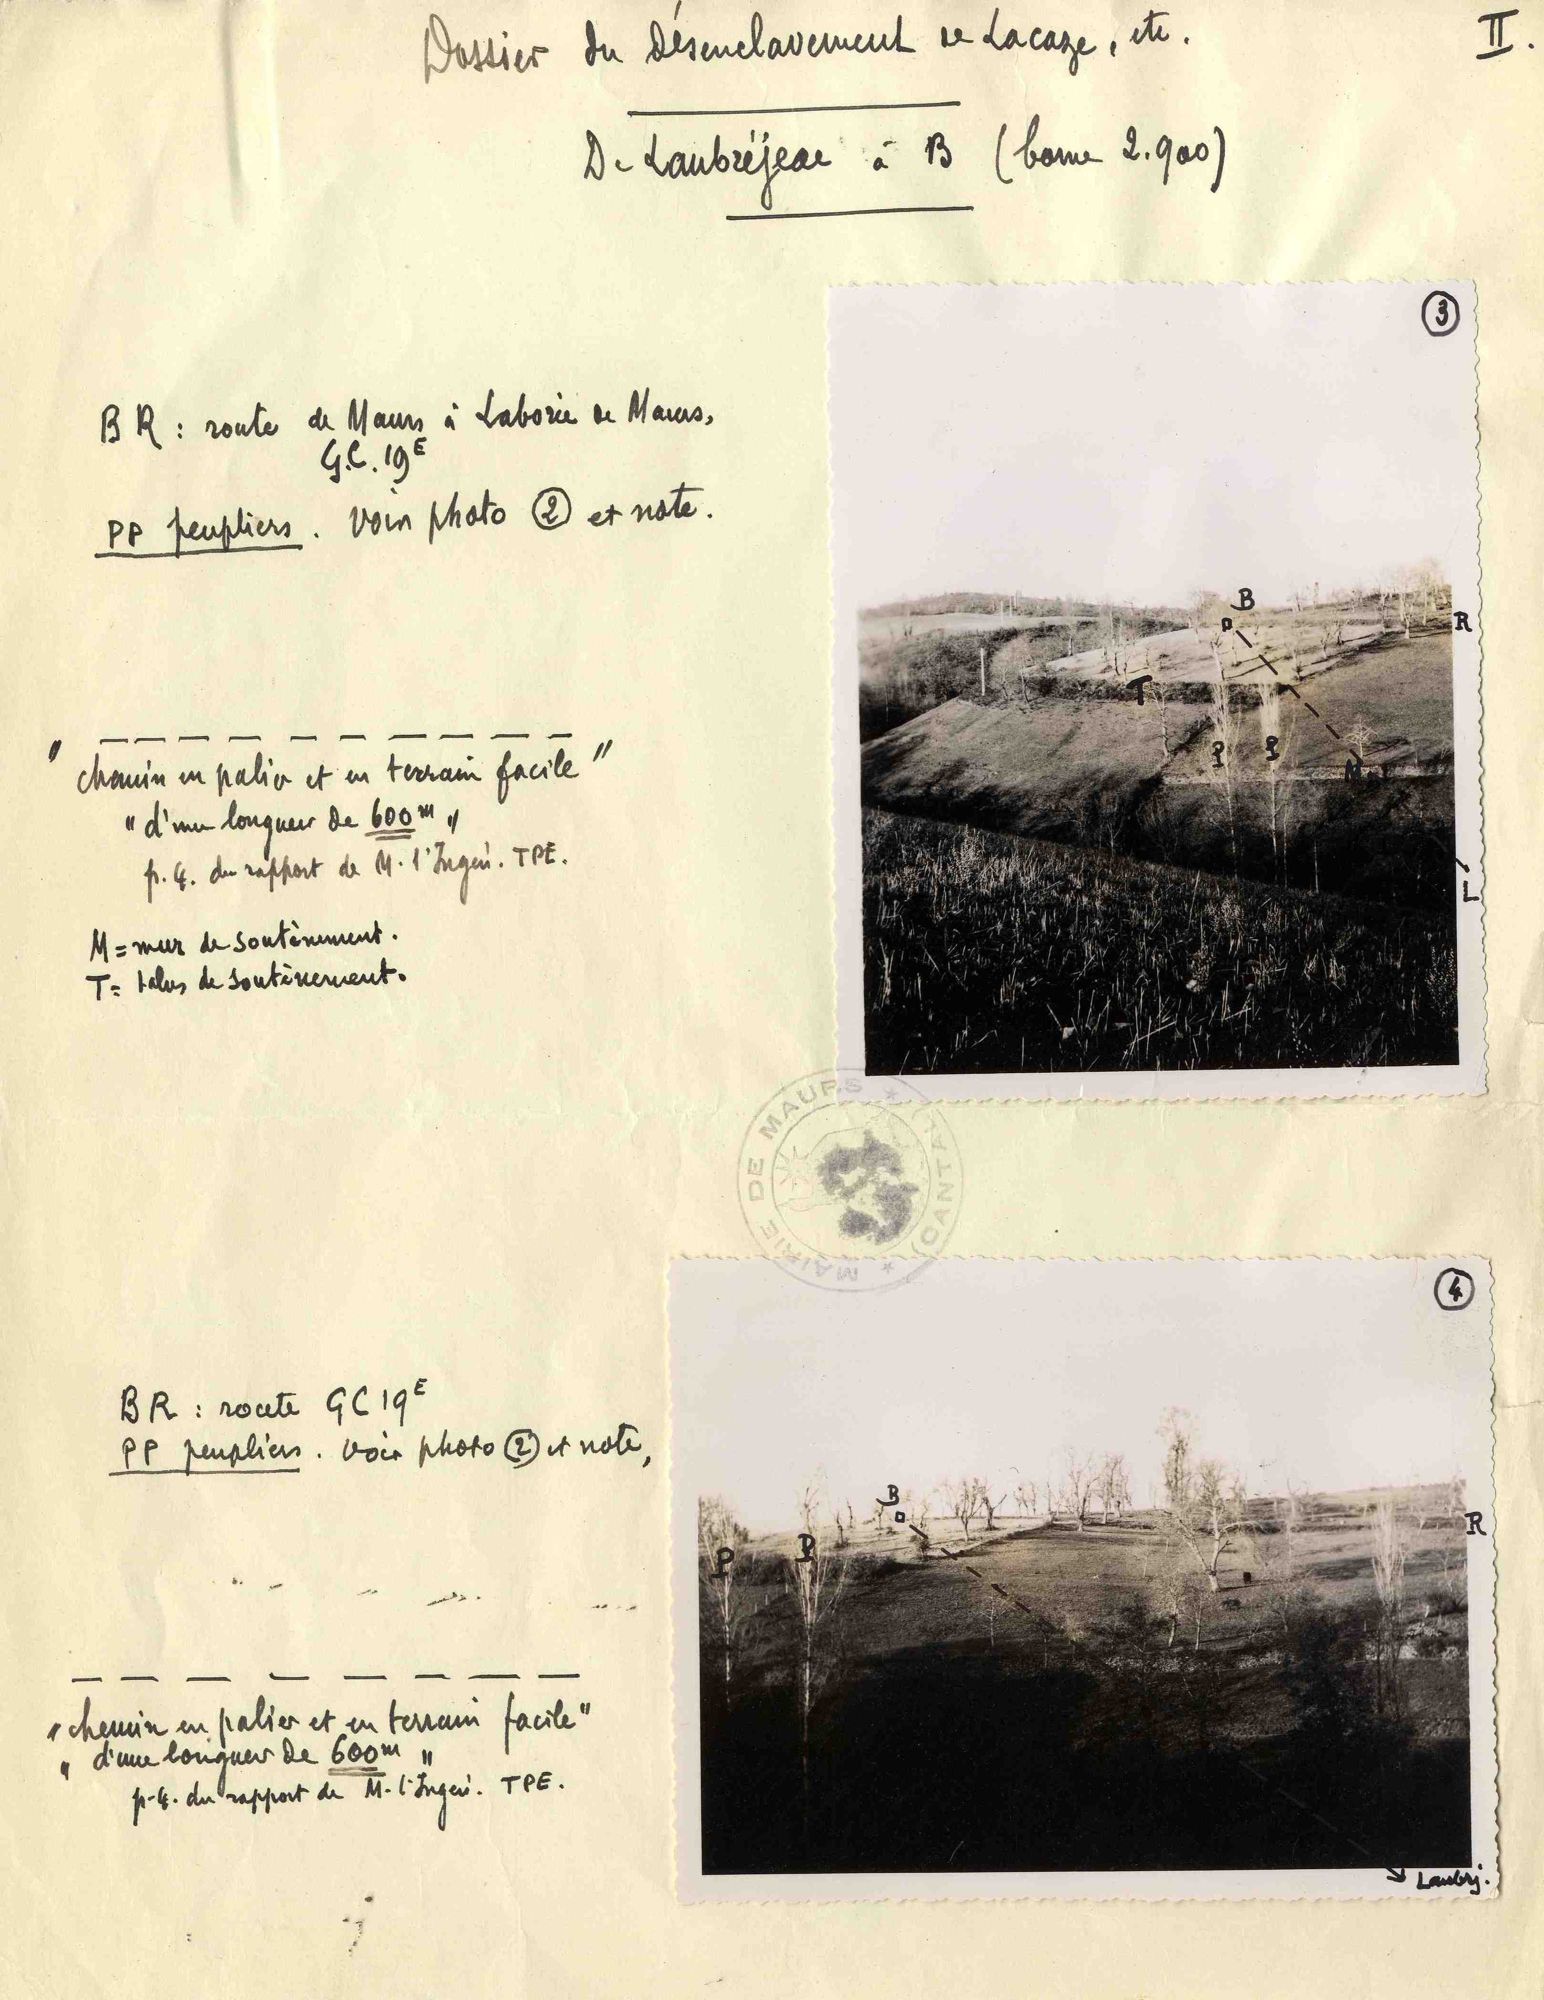 Dossier du Désenclavement de Lacaze, etc.
II.
De Laubréjeac à B (borne 2.900)
3
BR : route de Maurs à Laborie de Maurs,
G.C. 19E
PP peupliers. Voir photo 2 et note.
B
R
T
P P
M
L
" chemin en palier et en terrain facile "
" d'une longueur de 600m "
p. 4. du rapport de M. l'Ingén. TPE.
M = mur de soutènement.
T = talus de soutènement.
MAIRIE DE MAURS * (CANTAL) *
4
BR : route GC 19E
PP peupliers. Voir photo 2 et note,
B
R
P P
" chemin en palier et en terrain facile "
" d'une longueur de 600m "
p. 4. du rapport de M. l'Ingén. TPE.
Laubrj.